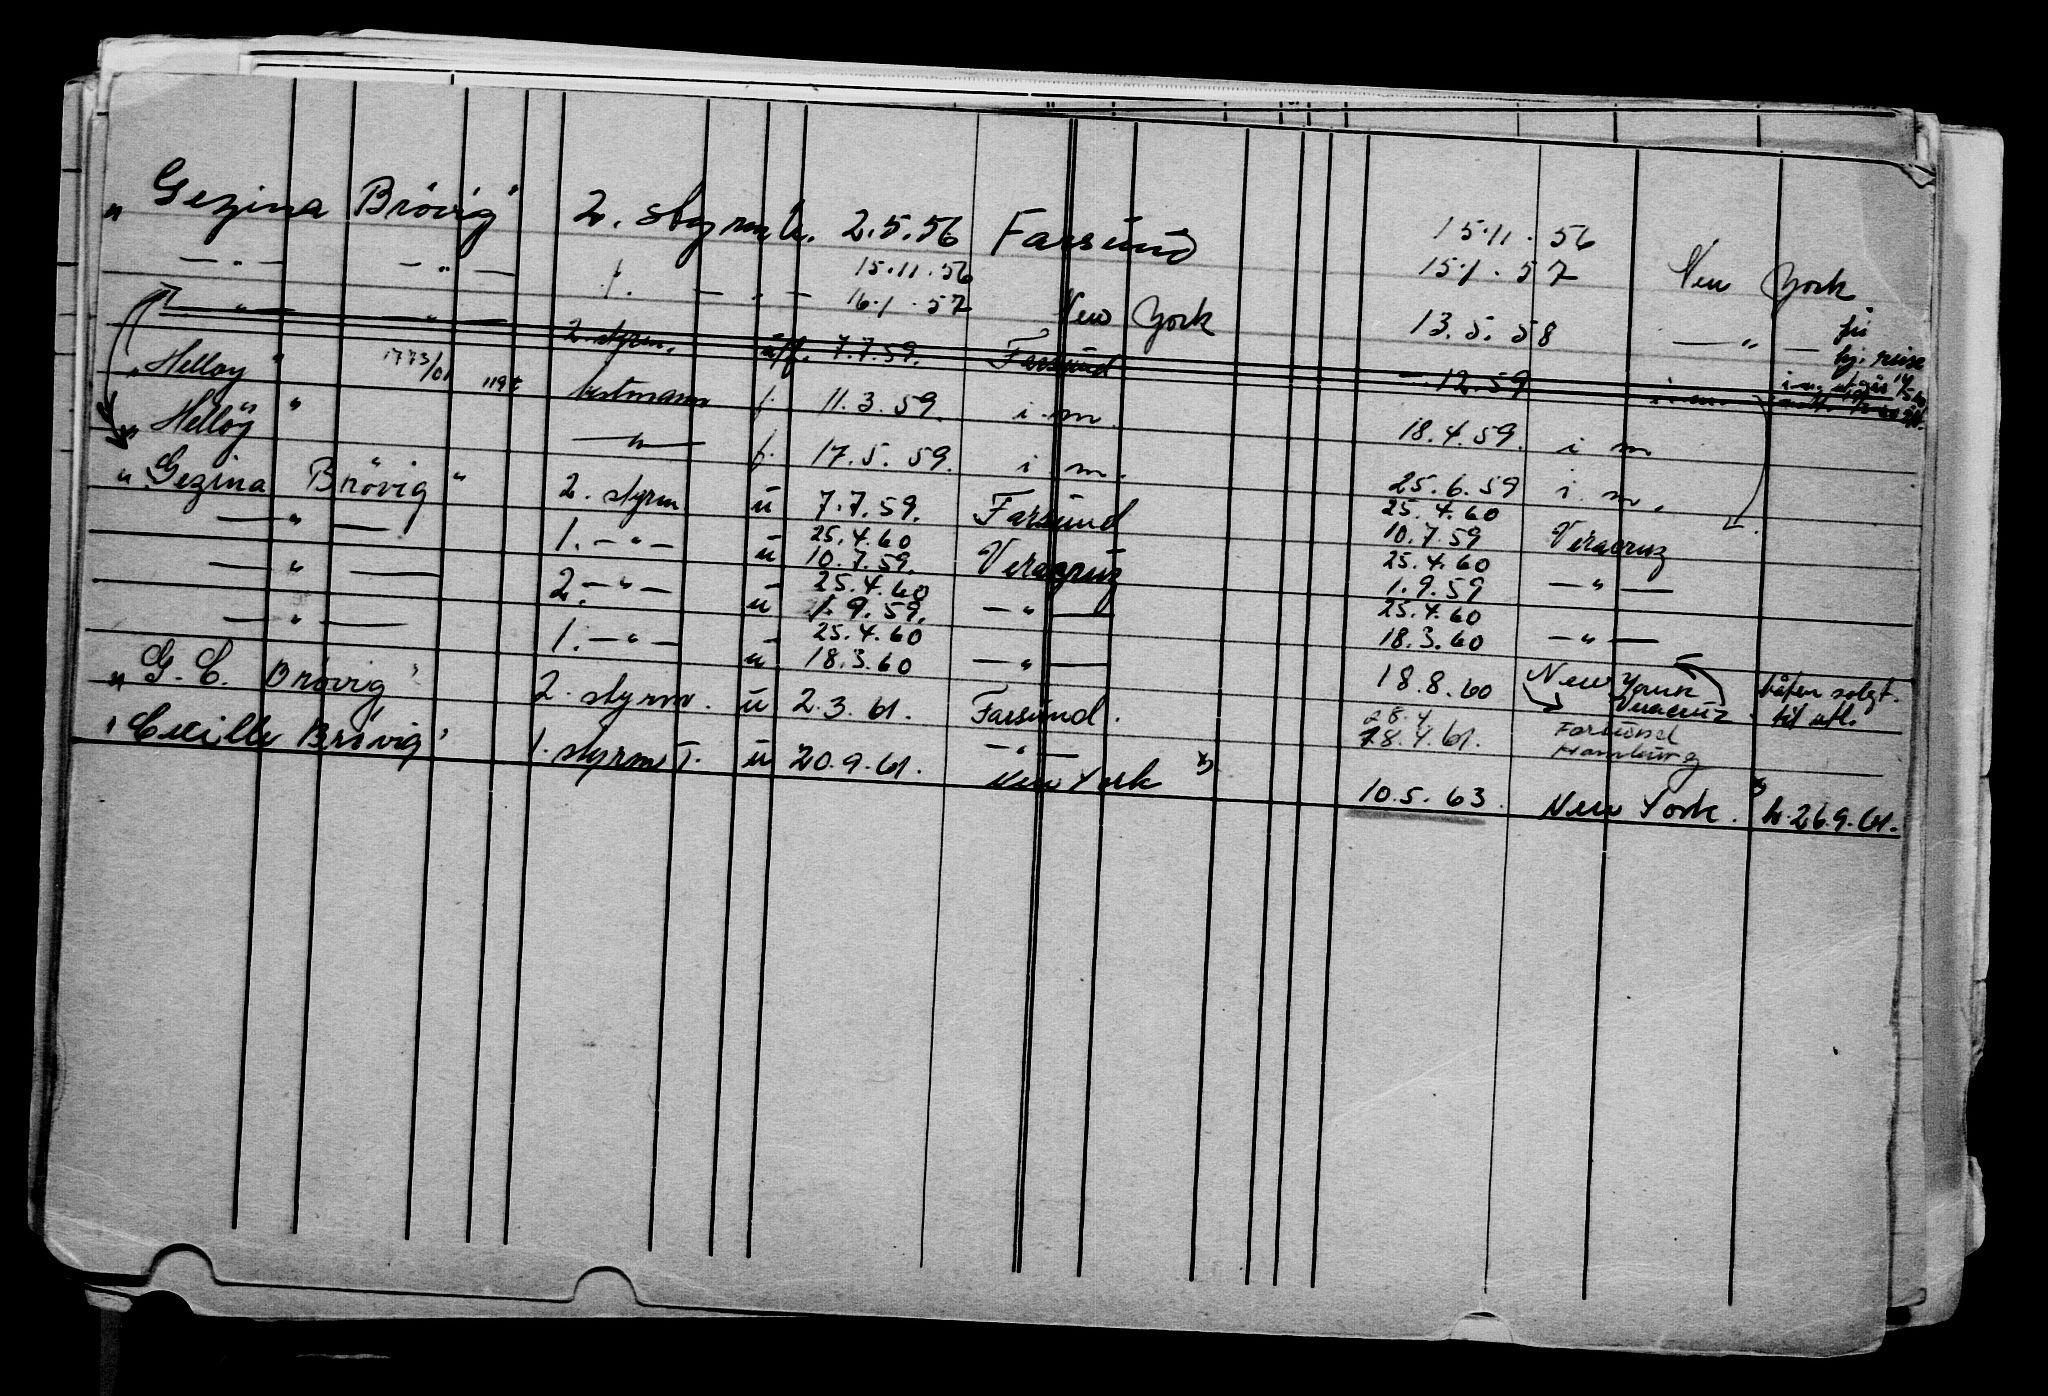 " Gezina Brövig" 2. styrm. u. 2.5.56 Farsund 15.11.56
— " — — " — 1. — " — 15.11.56 15.1.57 New York.
— " — — " — 2. styrm. 16.1.57 New York 13.5.58 — " — fri hj. reise
u/f. 7.7.59. Farsund —.12.59
" Helløy " 1773/01 119t bestmann f. 11.3.59. i.m. 18.4.59. i m
" Helløy " — " — f. 17.5.59. i.m. 25.6.59 i.m.
" Gezina Brövig " 2. styrm ü 7.7.59. Farsund 25.4.60 10.7.59 Veracruz
— " — 1. — " — ü 25.4.60 10.7.59. Veracruz 25.4.60 1.9.59 — " —
— " — 2. — " — ü 25.4.60 1.9.59. — " — 25.4.60 18.3.60 — " —
— " — 1. — " — ü 25.4.60 18.3.60 — " — 18.8.60 New York Veracruz båten solgt. til utl.
" G. C. Brøvig " 2. styrm. ü 2.3.61. Farsund. 28.4 18.4.61. Farsund Hamburg
" Cecilie Brøvig " 1. styrm T. ü 20.9.61. — " — New York *) 10.5.63. New York. *) h. 26.9.61.